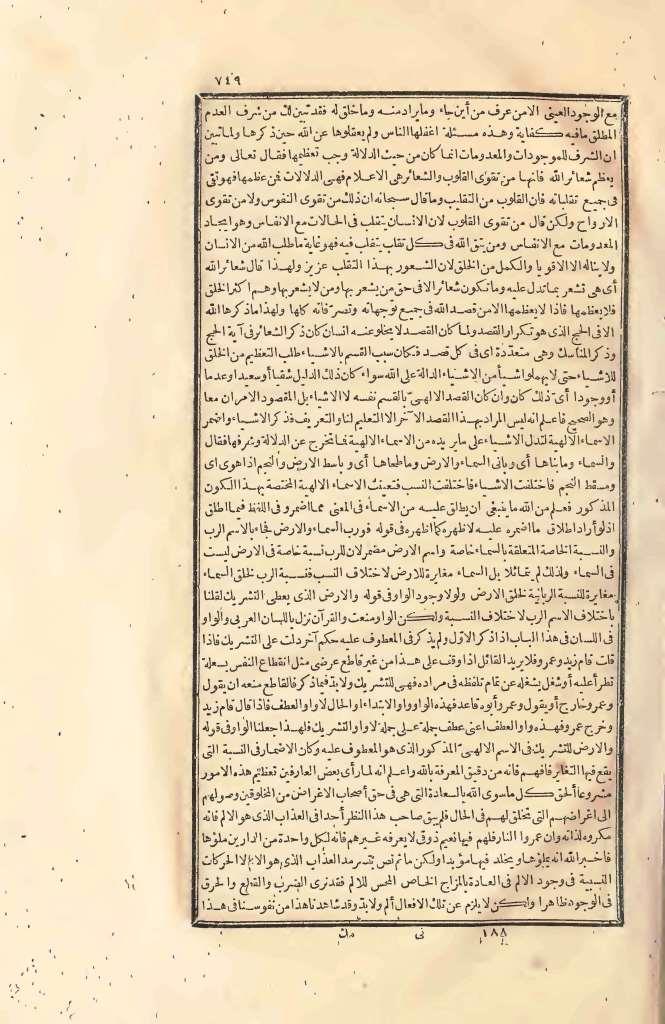 ٧٤٩
مع الوجود العينى الامن عرف من أين جاء وما يراد منه وما خلق له فقد تبين لك من شرف العدم
المطلق ما فيه كفاية وهذه مسئلة اغفلها الناس ولم يعقلوها عن الله حين ذكرها ولما تبين
ان الشرف للموجودات والمعدومات انما كان من حيث الدلالة وجب تعظيمها فقال تعالى ومن
يعظم شعائر الله فانها من تقوى القلوب والشعائر هى الاعلام فهى الدلالات فمن عظمها فهو تقى
فى جميع تقلباته فان القلوب من التقليب وما قال سبحانه ان ذلك من تقوى النفوس ولا من تقوى
الارواح ولكن قال من تقوى القلوب لان الانسان يتقلب فى الحالات مع الانفاس وهو ايجاد
المعدومات مع الانفاس ومن يتق الله فى كل تقلب يتقلب فيه فهو غاية ما طلب الله من الانسان
ولا يناله الا الاقويا والكمل من الخلق لان الشعور بهذا التقلب عزيز ولهذا قال شعائر الله
أى هى تشعر بما تدل عليه وما تكون شعائر الا فى حق من يشعر بها ومن لا يشعر بها وهم اكثر الخلق
فلا يعظمها فاذا لا يعظمها الا من قصد الله فى جميع توجهاته وتصرّفاته كلها ولهذا ما ذكرها الله
الا فى الحج الذى هو تكرار القصد ولما كان القصد لا يخلو عنه انسان كان ذكر الشعائر فى آية الحج
وذكر المناسك وهى متعدّدة اى فى كل قصد فكان سبب القسم بالاشياء طلب التعظيم من الخلق
للاشياء حتى لا يهملوا شيأ من الاشياء الدالة على الله سواء كان ذلك الدليل شقيا أو سعيدا وعدما
أو وجودا أى ذلك كان وان كان القصد الالهىّ بالقسم نفسه لا الاشياء بل المقصود الامران معا
وهو الصحيح فاعلم انه ليس المراد بهذا القصد الآخر الا التعليم لنا والتعريف فذكر الاشياء واضمر
الاسماء الالهية لتدل الاشياء على ما يريده من الاسماء الالهية فما تخرج عن الدلالة وشرفها فقال
والسماء وما بناها أى وبانى السماء والارض وما طحاها أى وباسط الارض والنجم اذا هوى اى
ومسقط النجم فاختلفت الاشياء فاختلفت النسب فتعينت الاسماء الالهية المختصة بهذا الكون
المذكور فعلم من الله ما ينبغى ان يطلق عليه من الاسماء فى المعنى مما اضمر وفى اللفظ فيما اطلق
اذ لو أراد اطلاق ما اضمره عليه لاظهره كما اظهره فى قوله فورب السماء والارض فجاء بالاسم الرب
والنسبة الخاصة المتعلقة بالسماء خاصة واسم الارض مضمر لان للرب نسبة خاصة فى الارض ليست
فى السماء ولذلك لم يتماثلا بل السماء مغايرة للارض لاختلاف النسب فنسبة الرب لخلق السماء
مغايرة للنسبة الربانية لخلق الارض ولولا وجود الواو فى قوله والارض الذى يعطى التشريك لقلنا
باختلاف الاسم الرب لاختلاف النسبة ولكن الواو منعت والقرآن نزل باللسان العربى والواو
فى اللسان فى هذا الباب اذا ذكر الاول ولم يذكر فى المعطوف عليه حكم آخر دلت على التشريك فاذا
قلت قام زيد وعمرو فلا يريد القائل اذا وقف على هذا من غير قاطع عرضى مثل انقطاع النفس بسعلة
تطرأ عليه أو شغل يشغله عن تمام تلفظه فى مراده فهى للتشريك ولا بدّ فيما ذكر فالقاطع منعه ان يقول
وعمرو خارج أو يقول وعمرو أبوه قاعد فهذه الواو واو الابتداء أو الحال لا واو العطف فاذا قال قام زيد
وخرج عمرو فهذه واو العطف اعنى عطف جملة على جملة لا واو التشريك فلهذا جعلنا الواو فى قوله
والارض للتشريك فى الاسم الالهىّ المذكور الذى هو المعطوف عليه وكان الاضمار فى النسبة التى
يقع فيها التغاير فافهم فانه من دقيق المعرفة بالله واعلم انه لما رأى بعض العارفين تعظيم هذه الامور
مشروعا ألحق كل ما سوى الله بالسعادة التى هى فى حق أصحاب الاغراض من المخلوقين وصولهم
الى اغراضهم التى تخلق لهم فى الحال فلم يبق صاحب هذا النظر أحدا فى العذاب الذى هو الالم فانه
مكروه لذاته وان عمروا النار فلهم فيها نعيم ذوقى لا يعرفه غيرهم فانه لكل واحدة من الدارين ملؤها
فاخبر الله انه يملؤها ويخلد فيها مؤبدا ولكن ما ثم نص بتسرمد العذاب الذى هو الالم لا الحركات
السببية فى وجود الالم فى العادة بالمزاج الخاص المحس للالم فقد نرى الضرب والقطع والحرق
فى الوجود ظاهرا ولكن لا يلزم عن تلك الافعال ألم ولا بدّ وقد شاهدنا هذا من نفوسنا فى هذا
١٨٨ نى مك